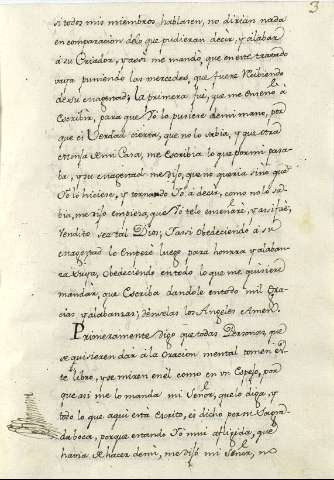 3
si todos mis miembros hablaren, no dirian nada
en comparacion delo que pudieran decir, y alabar
à su Criador, y assi me mandò, que en este tratado
vaya puniendo las mercedes, que fuere Recibiendo
de su magestad; la primera fue, que me enseñò à
Escribir, para que Yo lo pusiere de mi mano, por
que es Verdad cierta, que no lo sabia, y que otra
en mi Casa, me Escribia lo que por mi pasa-
ba, y su magestad me dijo, que no queria sino que
Yo lo hiciese, y tornando Yo à decir, como no lo sa-
bia, me dijo empieza, que Yo te lo enseñarè, y assi fuè,
Vendito sea tal Dios; Y assi obedeciendo à su
magestad lo Empecè luego para honrra y alaban-
za suya, obedeciendo en todo lo que me quisiere
mandar, que Escriba dandole en todo mil Gra-
cias y alabanzas, denselas los Angeles Amen.
Primeramente digo que todas Personas, que
se quisieren dar à la Oracion mental tomen es-
te libro, y se miren en el como en un Espejo, por
que assi me lo manda mi Señor, que lo diga, y
todo lo que aqui està Escrito, es dicho por su Sagra-
da boca, porque estando Yo mui afligida, que
havia de hacer de mi, me dijo mi Señor, no